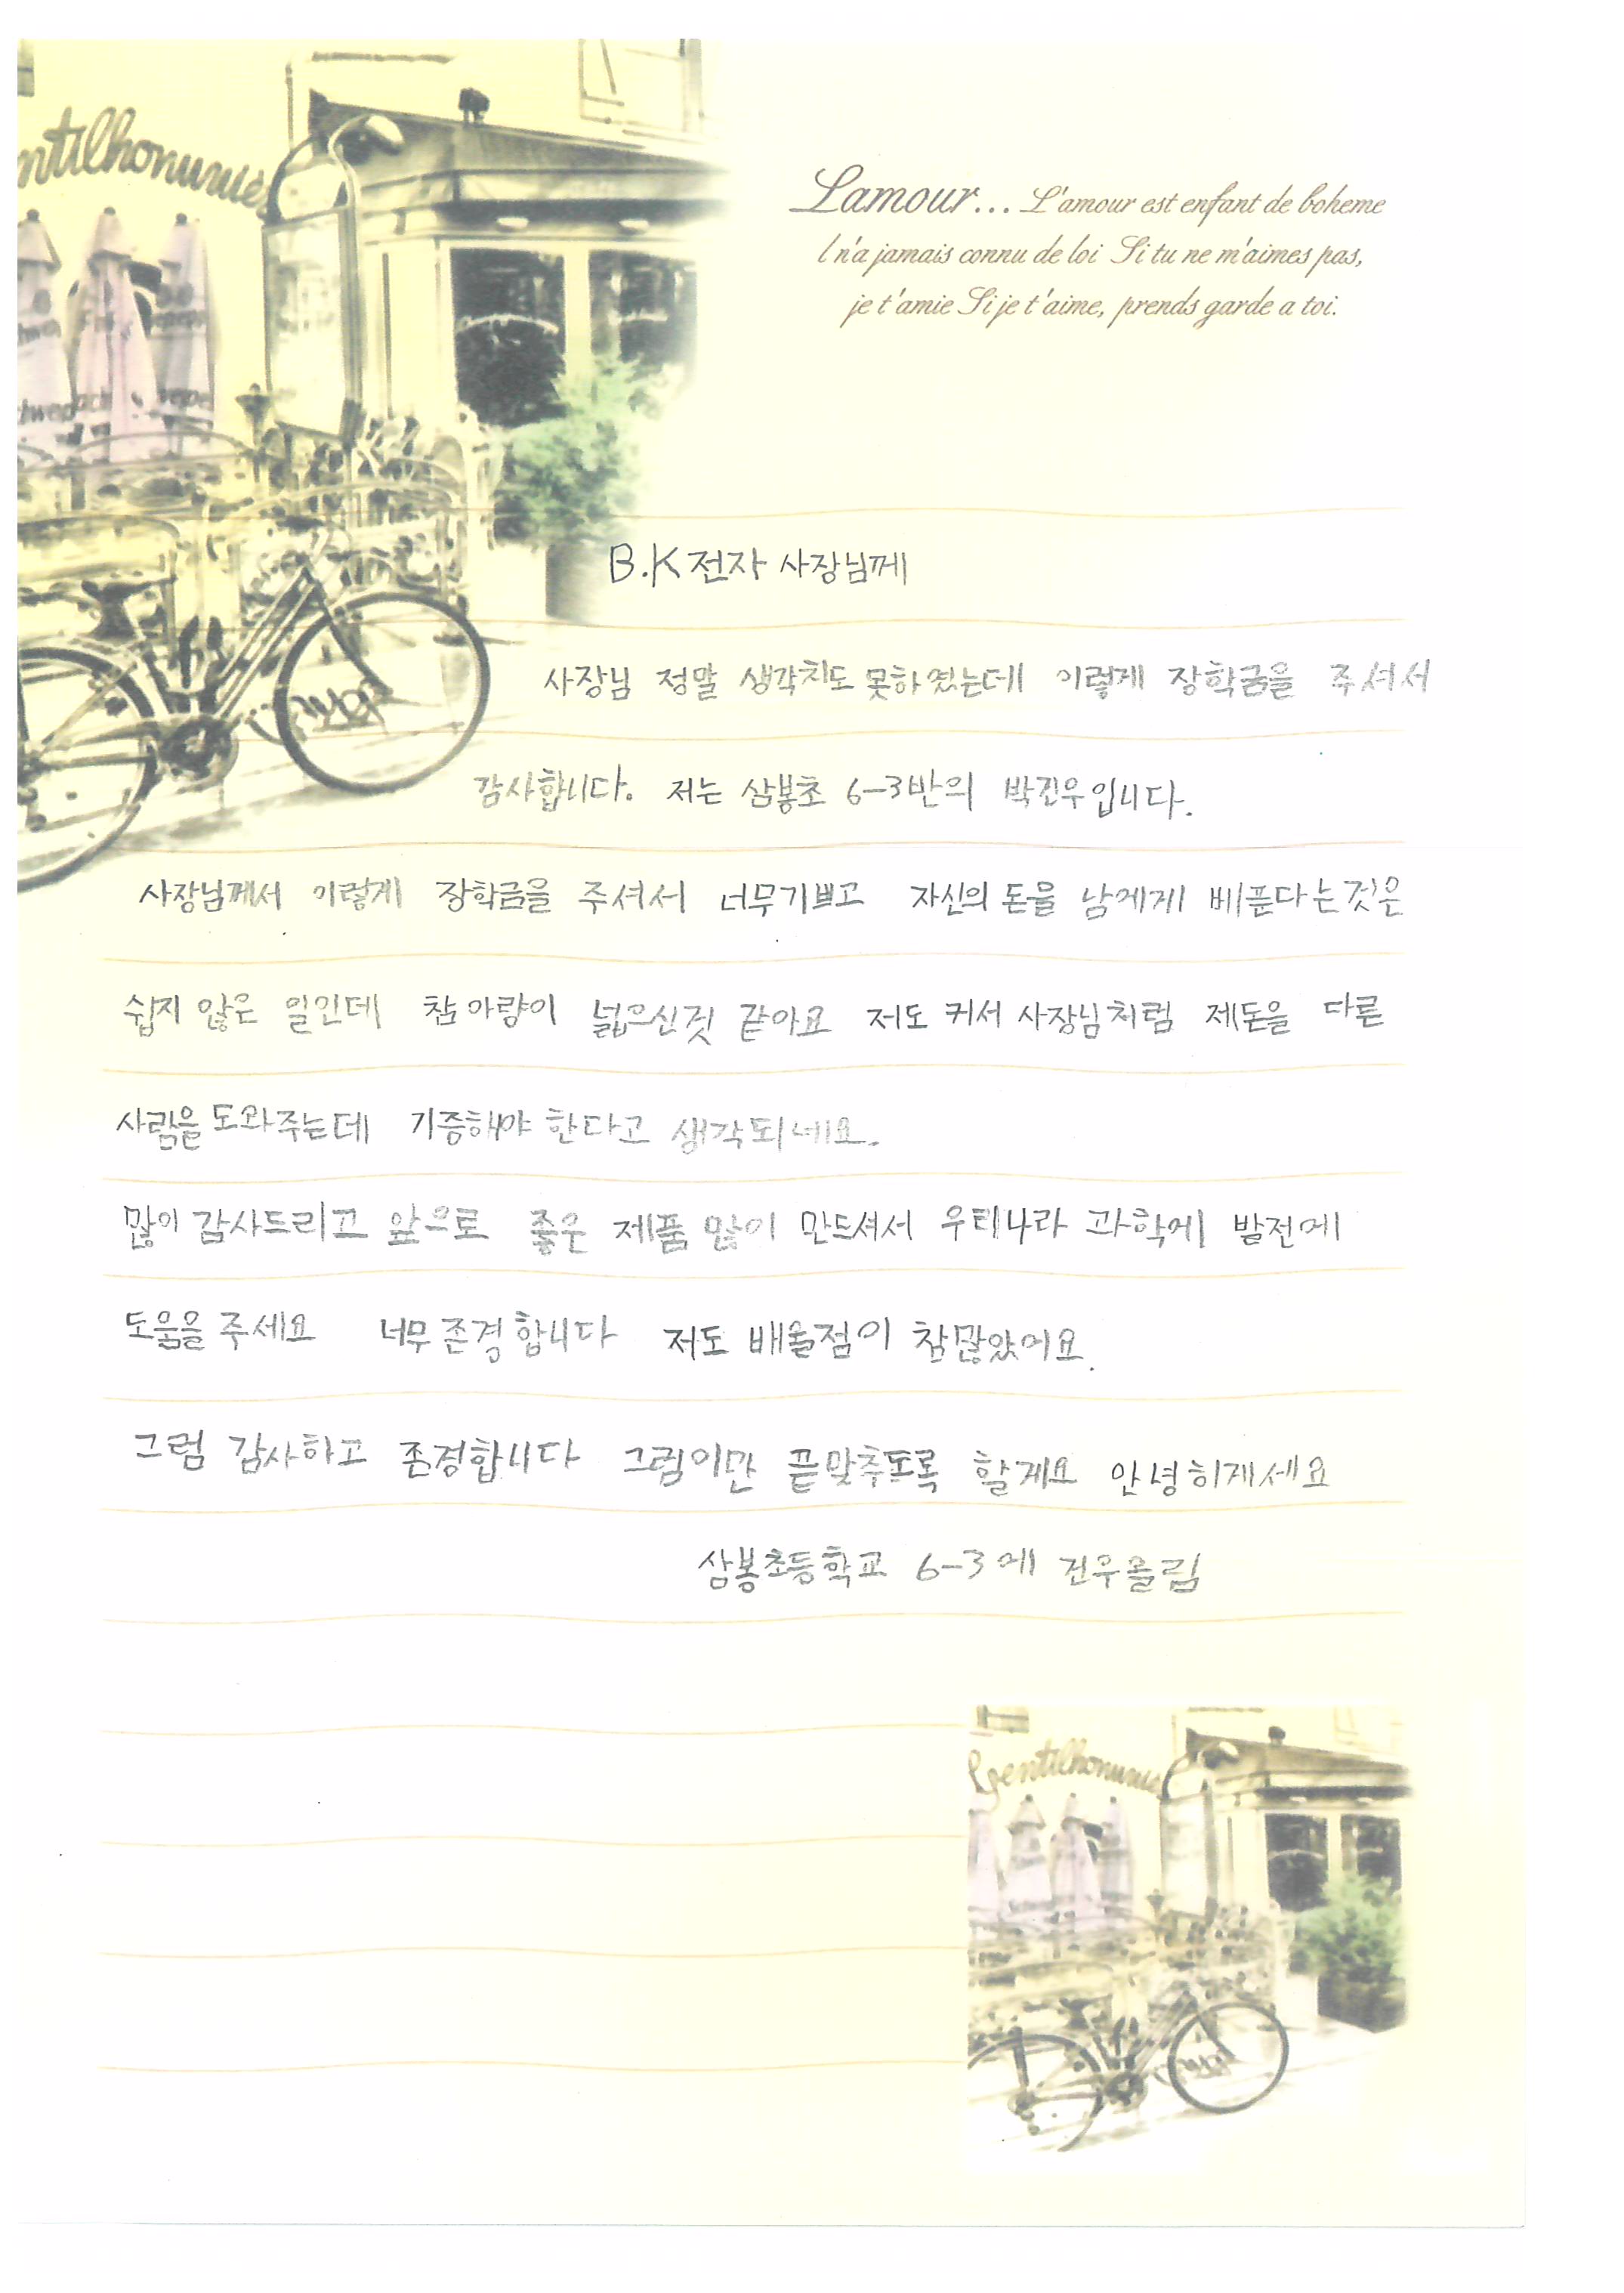 ntilhonume
Lamour... L'amour est enfant de boheme
l n'a jamais connu de loi Si tu ne m'aimes pas,
je t'amie Si je t'aime, prends garde a toi.
B.K 전자 사장님께
사장님 정말 생각치도 못하였는데 이렇게 장학금을 주셔서
감사합니다. 저는 삼봉초 6-3반의 박진우입니다.
사장님께서 이렇게 장학금을 주셔서 너무기쁘고 자신의 돈을 남에게 베푼다는것은
쉽지 않은 일인데 참 아량이 넓으신것 같아요 저도 커서 사장님처럼 제돈을 다른
사람을 도와주는데 기증해야 한다고 생각되네요.
많이 감사드리고 앞으로 좋은 제품 많이 만드셔서 우리나라 과학에 발전에
도움을 주세요 너무 존경합니다 저도 배울점이 참많았어요.
그럼 감사하고 존경합니다 그럼이만 끝맞추도록 할게요 안녕히계세요
삼봉초등학교 6-3에 진우올림
Gentilhonume